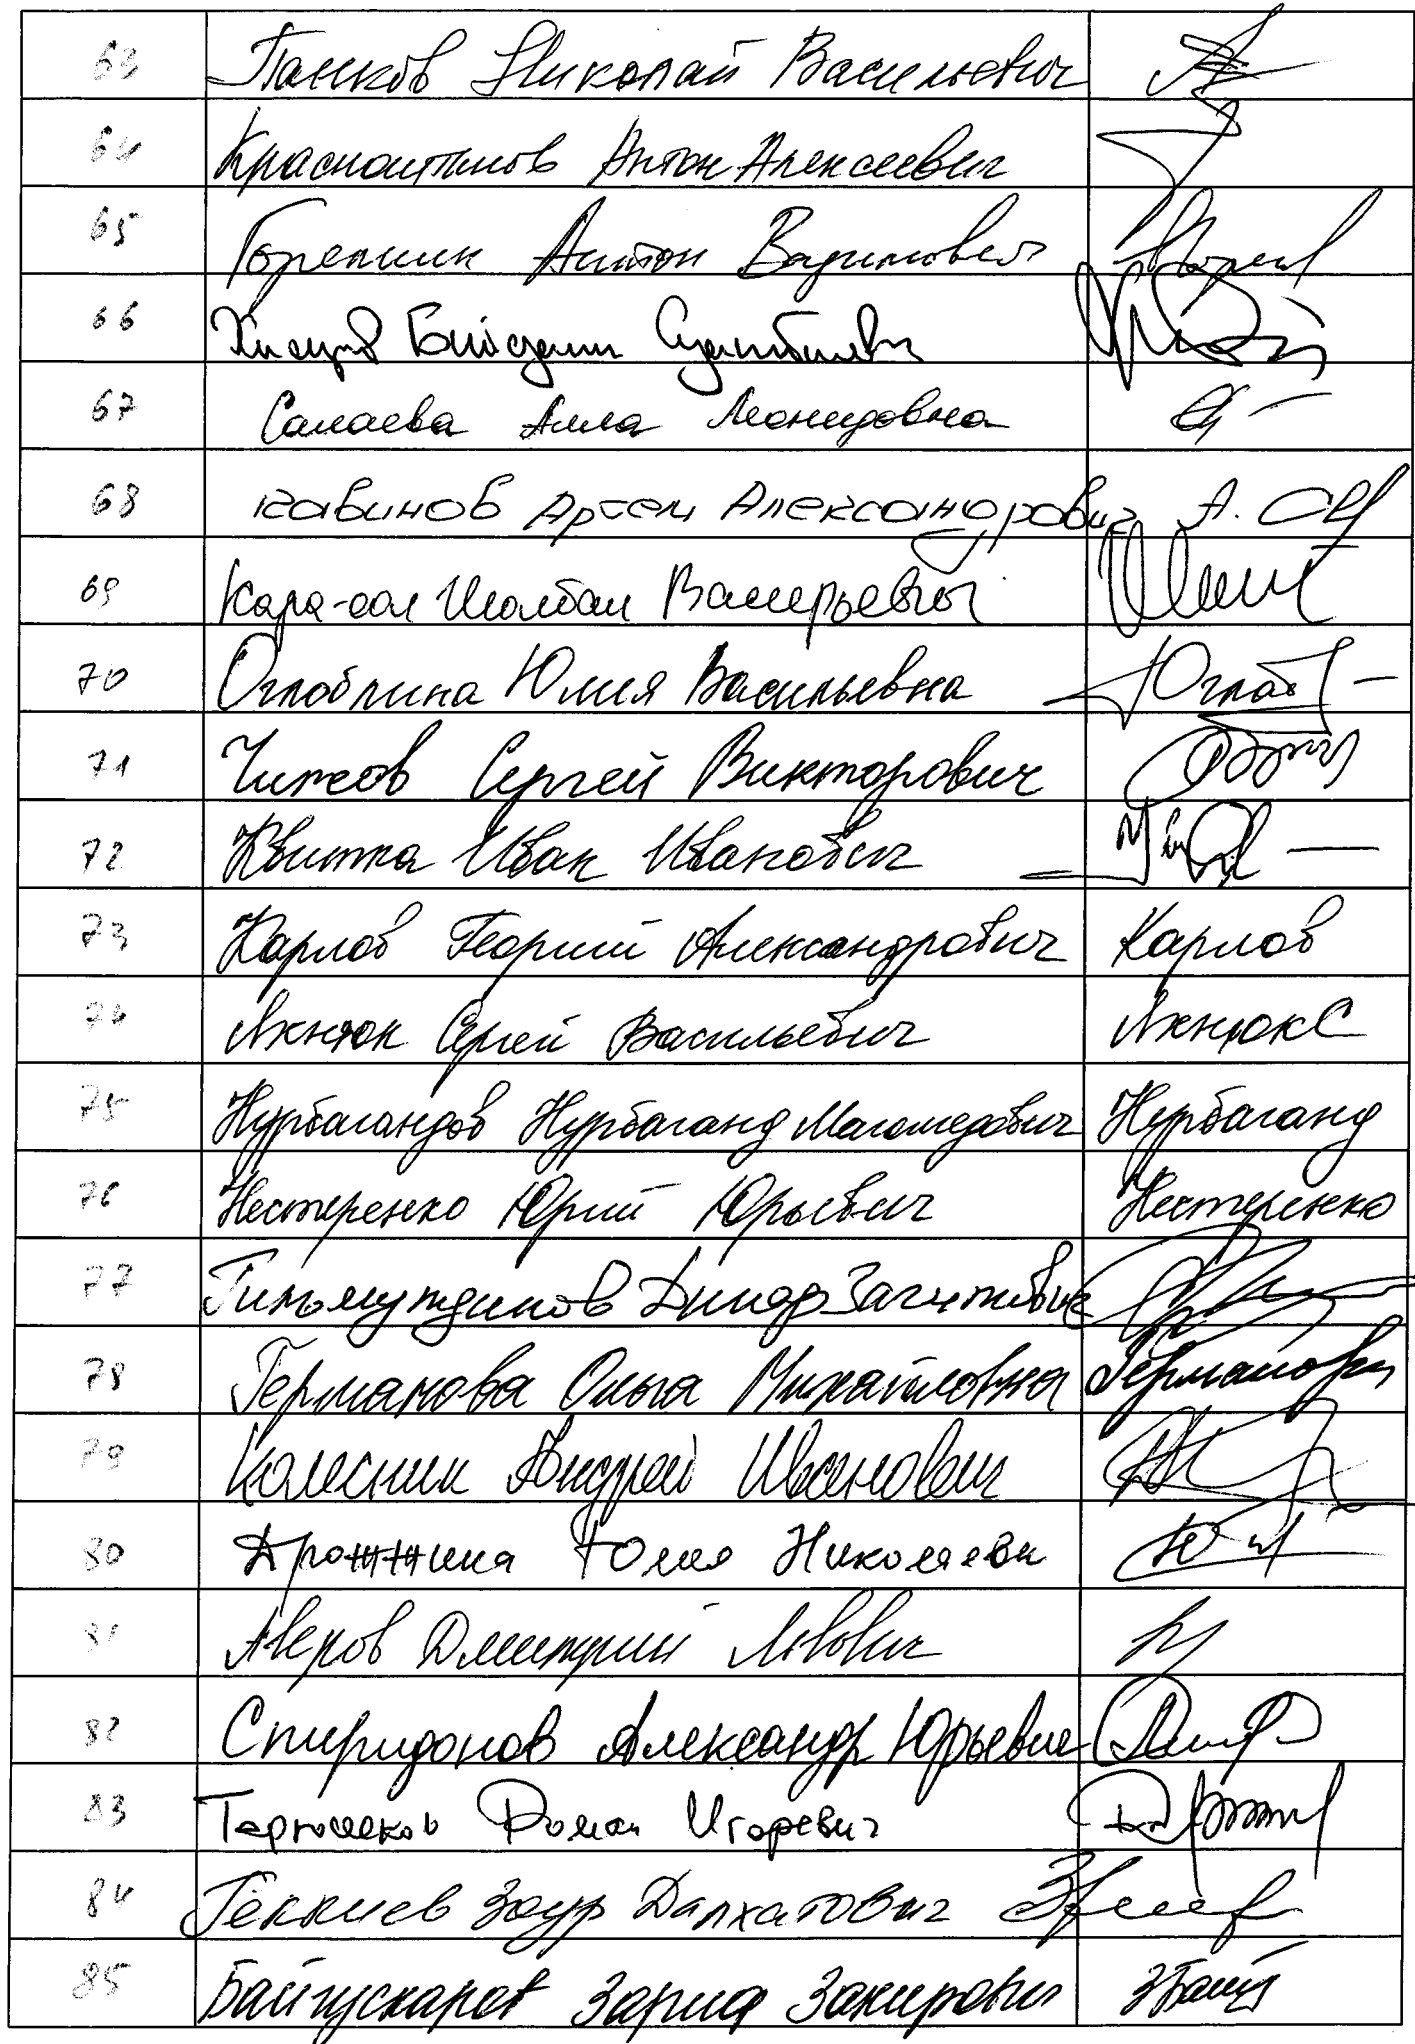 63 Панков Николай Васильевич
64 Красноштанов Антон Алексеевич
65 Горелкин Антон Вадимович
66 Хамзаев Бийсултан Султанбиевич
67 Салаева Алла Леонидовна
68 Кавинов Артем Александрович А.
69 Кара-оол Шолбан Валерьевич
70 Оглоблина Юлия Васильевна
71 Чижов Сергей Викторович
72 Квитка Иван Иванович
73 Карлов Георгий Александрович Карлов
74 Якнюк Сергей Васильевич Якнюк С
75 Нурбагандов Нурбаганд Магомедович Нурбаганд
76 Нестеренко Юрий Юрьевич Нестеренко
77 Гильмутдинов Динар Загитович
78 Германова Ольга Михайловна Германова
79 Колесник Андрей Иванович
80 Дрожжина Юлия Николаевн
81 Аверов Дмитрий Львович
82 Спиридонов Александр Юрьевич
83 Тарнюшков Роман Игоревич
84 Геккиев Заур Далхатович
85 Байгускаров Зариф Закирович